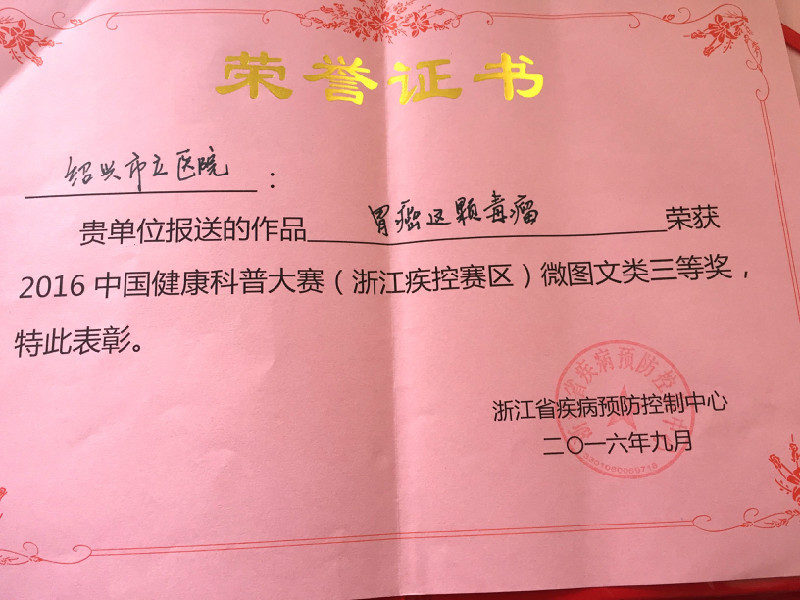 荣誉证书
绍兴市立医院：
贵单位报送的作品胃癌这颗毒瘤荣获
2016中国健康科普大赛（浙江疾控赛区）微图文类三等奖，
特此表彰。
浙江省疾病预防控制中心
二〇一六年九月